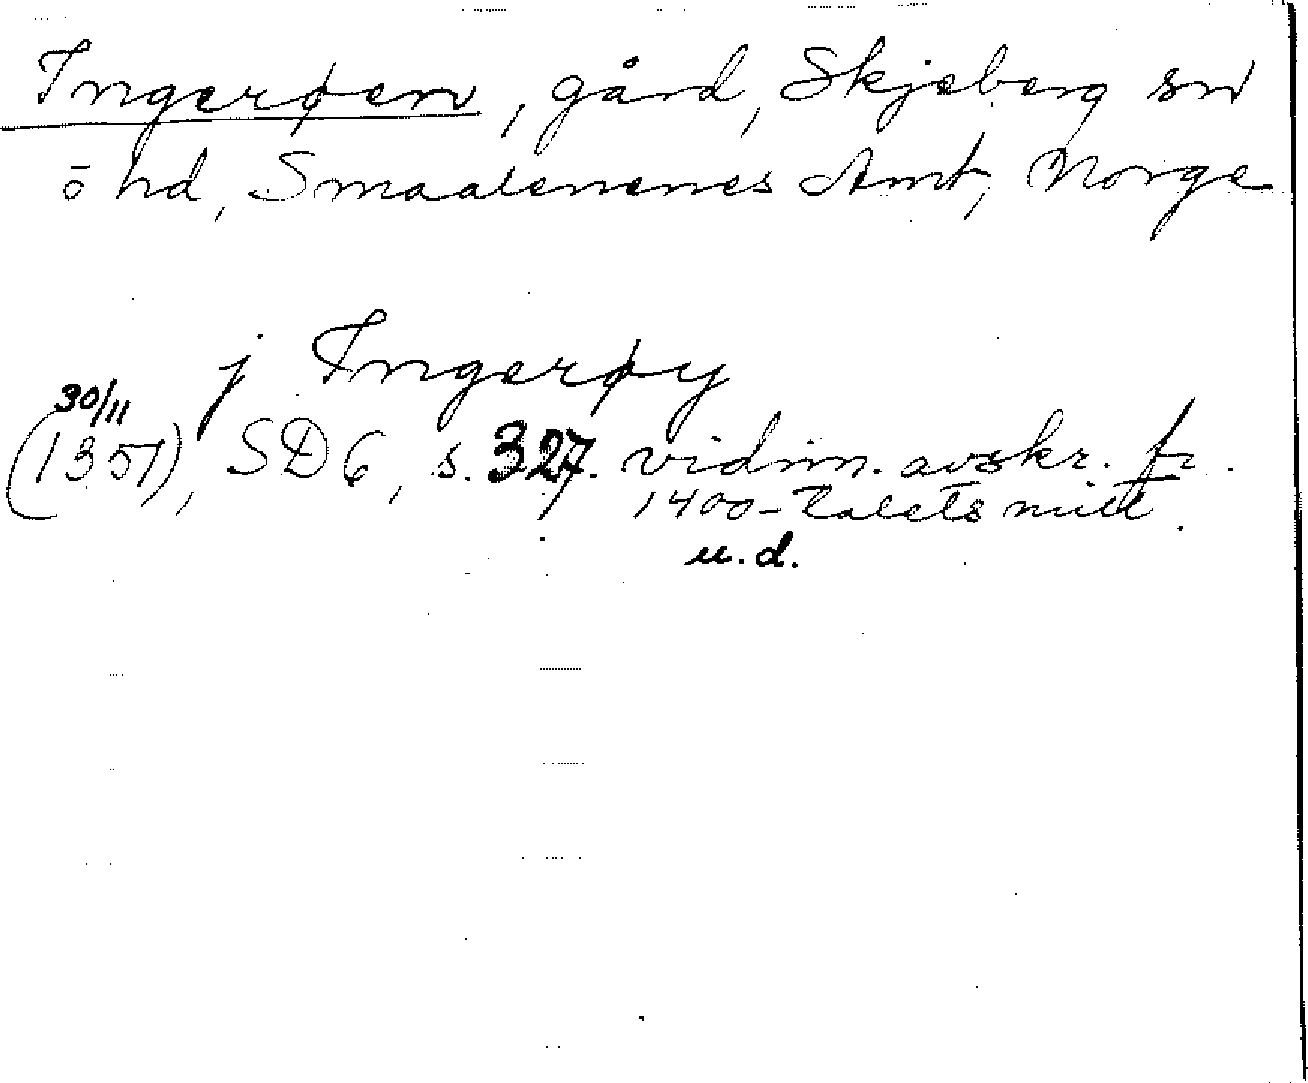 Ingerøen, gård, Skjeberg sn
o hd, Smaalenenes Amt, Norge
j Ingerøy
30/11
(1351), SD 6, s. 327. vidim. avskr. fr.
1400-talets mitt.
u.d.